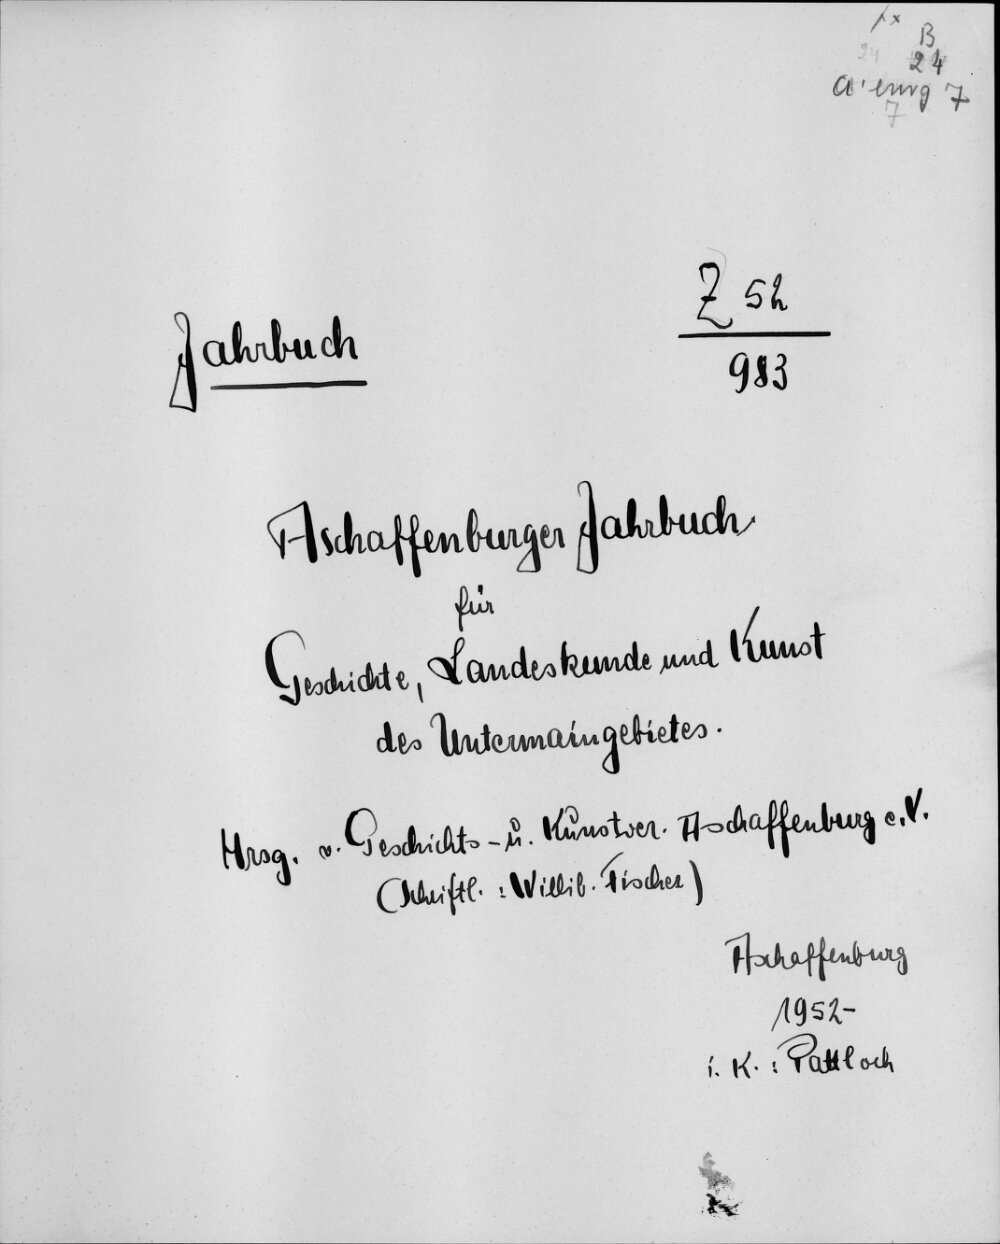 B
24
24
A'burg 7
7
Z 52
983
Jahrbuch
Aschaffenburger Jahrbuch
für
Geschichte, Landeskunde und Kunst
des Untermaingebietes.
Hrsg. v. Geschichts- u. Kunstver. Aschaffenburg e.V.
(Schriftl.: Willib. Fischer)
Aschaffenburg
1952-
i. K.: Pattloch